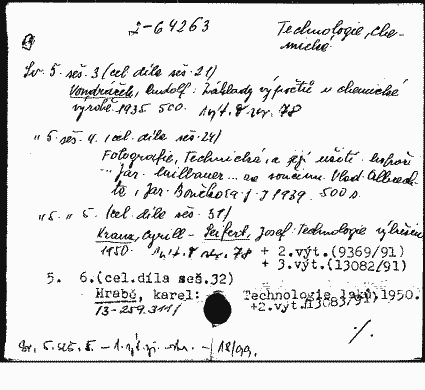 I-64263
Technologie, che-
mická.
Sv. 5. seš. 3 (cel. díla seš. 21)
Vondráček, Rudolf: Základy výpočtů v chemické
výrobě. 1935. 500.
" 5. seš. 4. (cel. díla seš. 24)
Fotografie, Technická, a její užití. Napsali
Jar. Baillauer... za součin. Vlad. Albrech-
ta, Jar. Boučka aj. 1939. 500 s.
" 5. " 5. (cel. díla seš. 31)
Kranz, Cyrill - Seifert, Josef: Technologie
1950. + 2.výt.(9369/91)
+ 3.výt.(13082/91)
5. 6.(cel.díla seš.32)
Hrabě, karel: Technologie laků, 1950.
13-259.311/ +2.výt.13083/91
./.
Sv. 5. seš. 5. - 18/99.